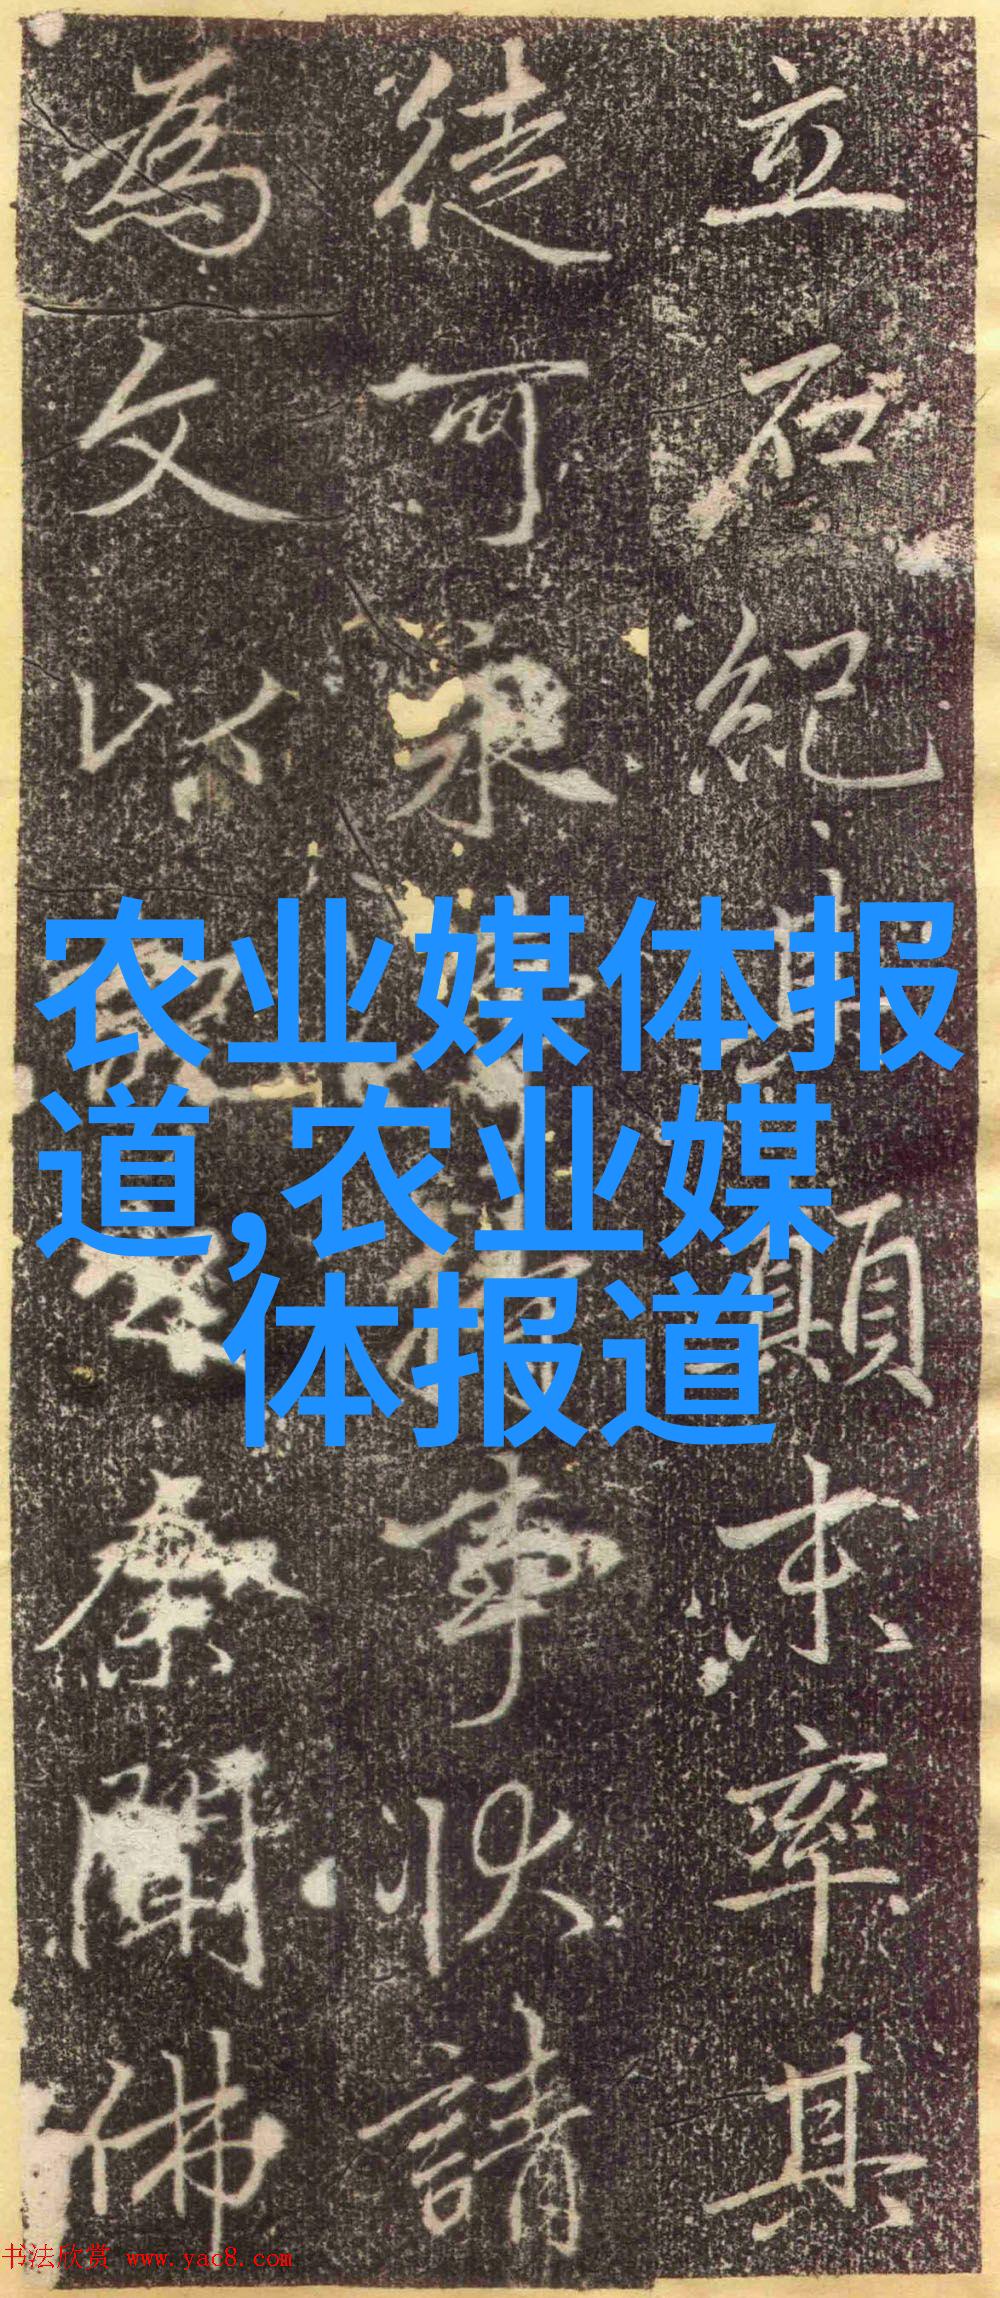 立石紀其顛末率其
徒可事状請
為文以余聞佛
农业媒体报
道,农业媒
体报道
书法欣赏 www.yac8.com